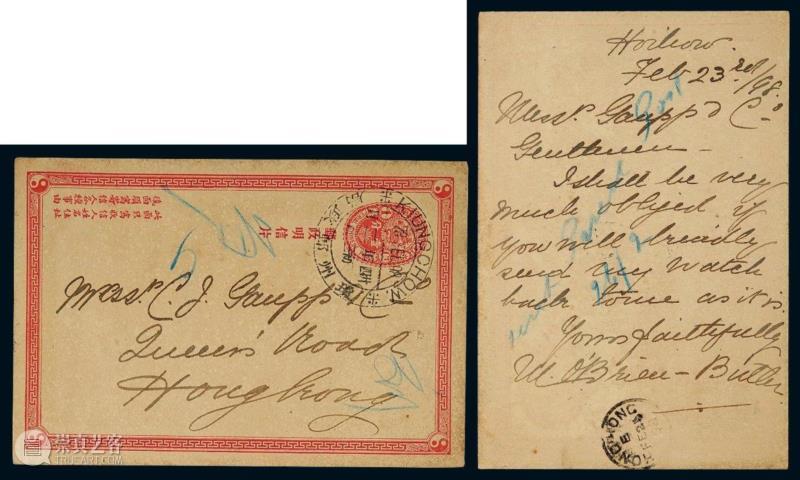 此面只寫收信人姓名住址
後面寫信
郵政明信片
KIUNGCHOW
Messrs. C. J. Gaupp
Queen's Road
Hongkong
Hoihow.
Feb 23rd/98.
Messrs. Gaupp & Co
Gentlemen—
I shall be very
much obliged if
you will kindly
send my watch
back home as it is.
Yours faithfully
W. O'Brien-Butler
HONG
FE 24
崇真艺客
TRUE-ART.COM